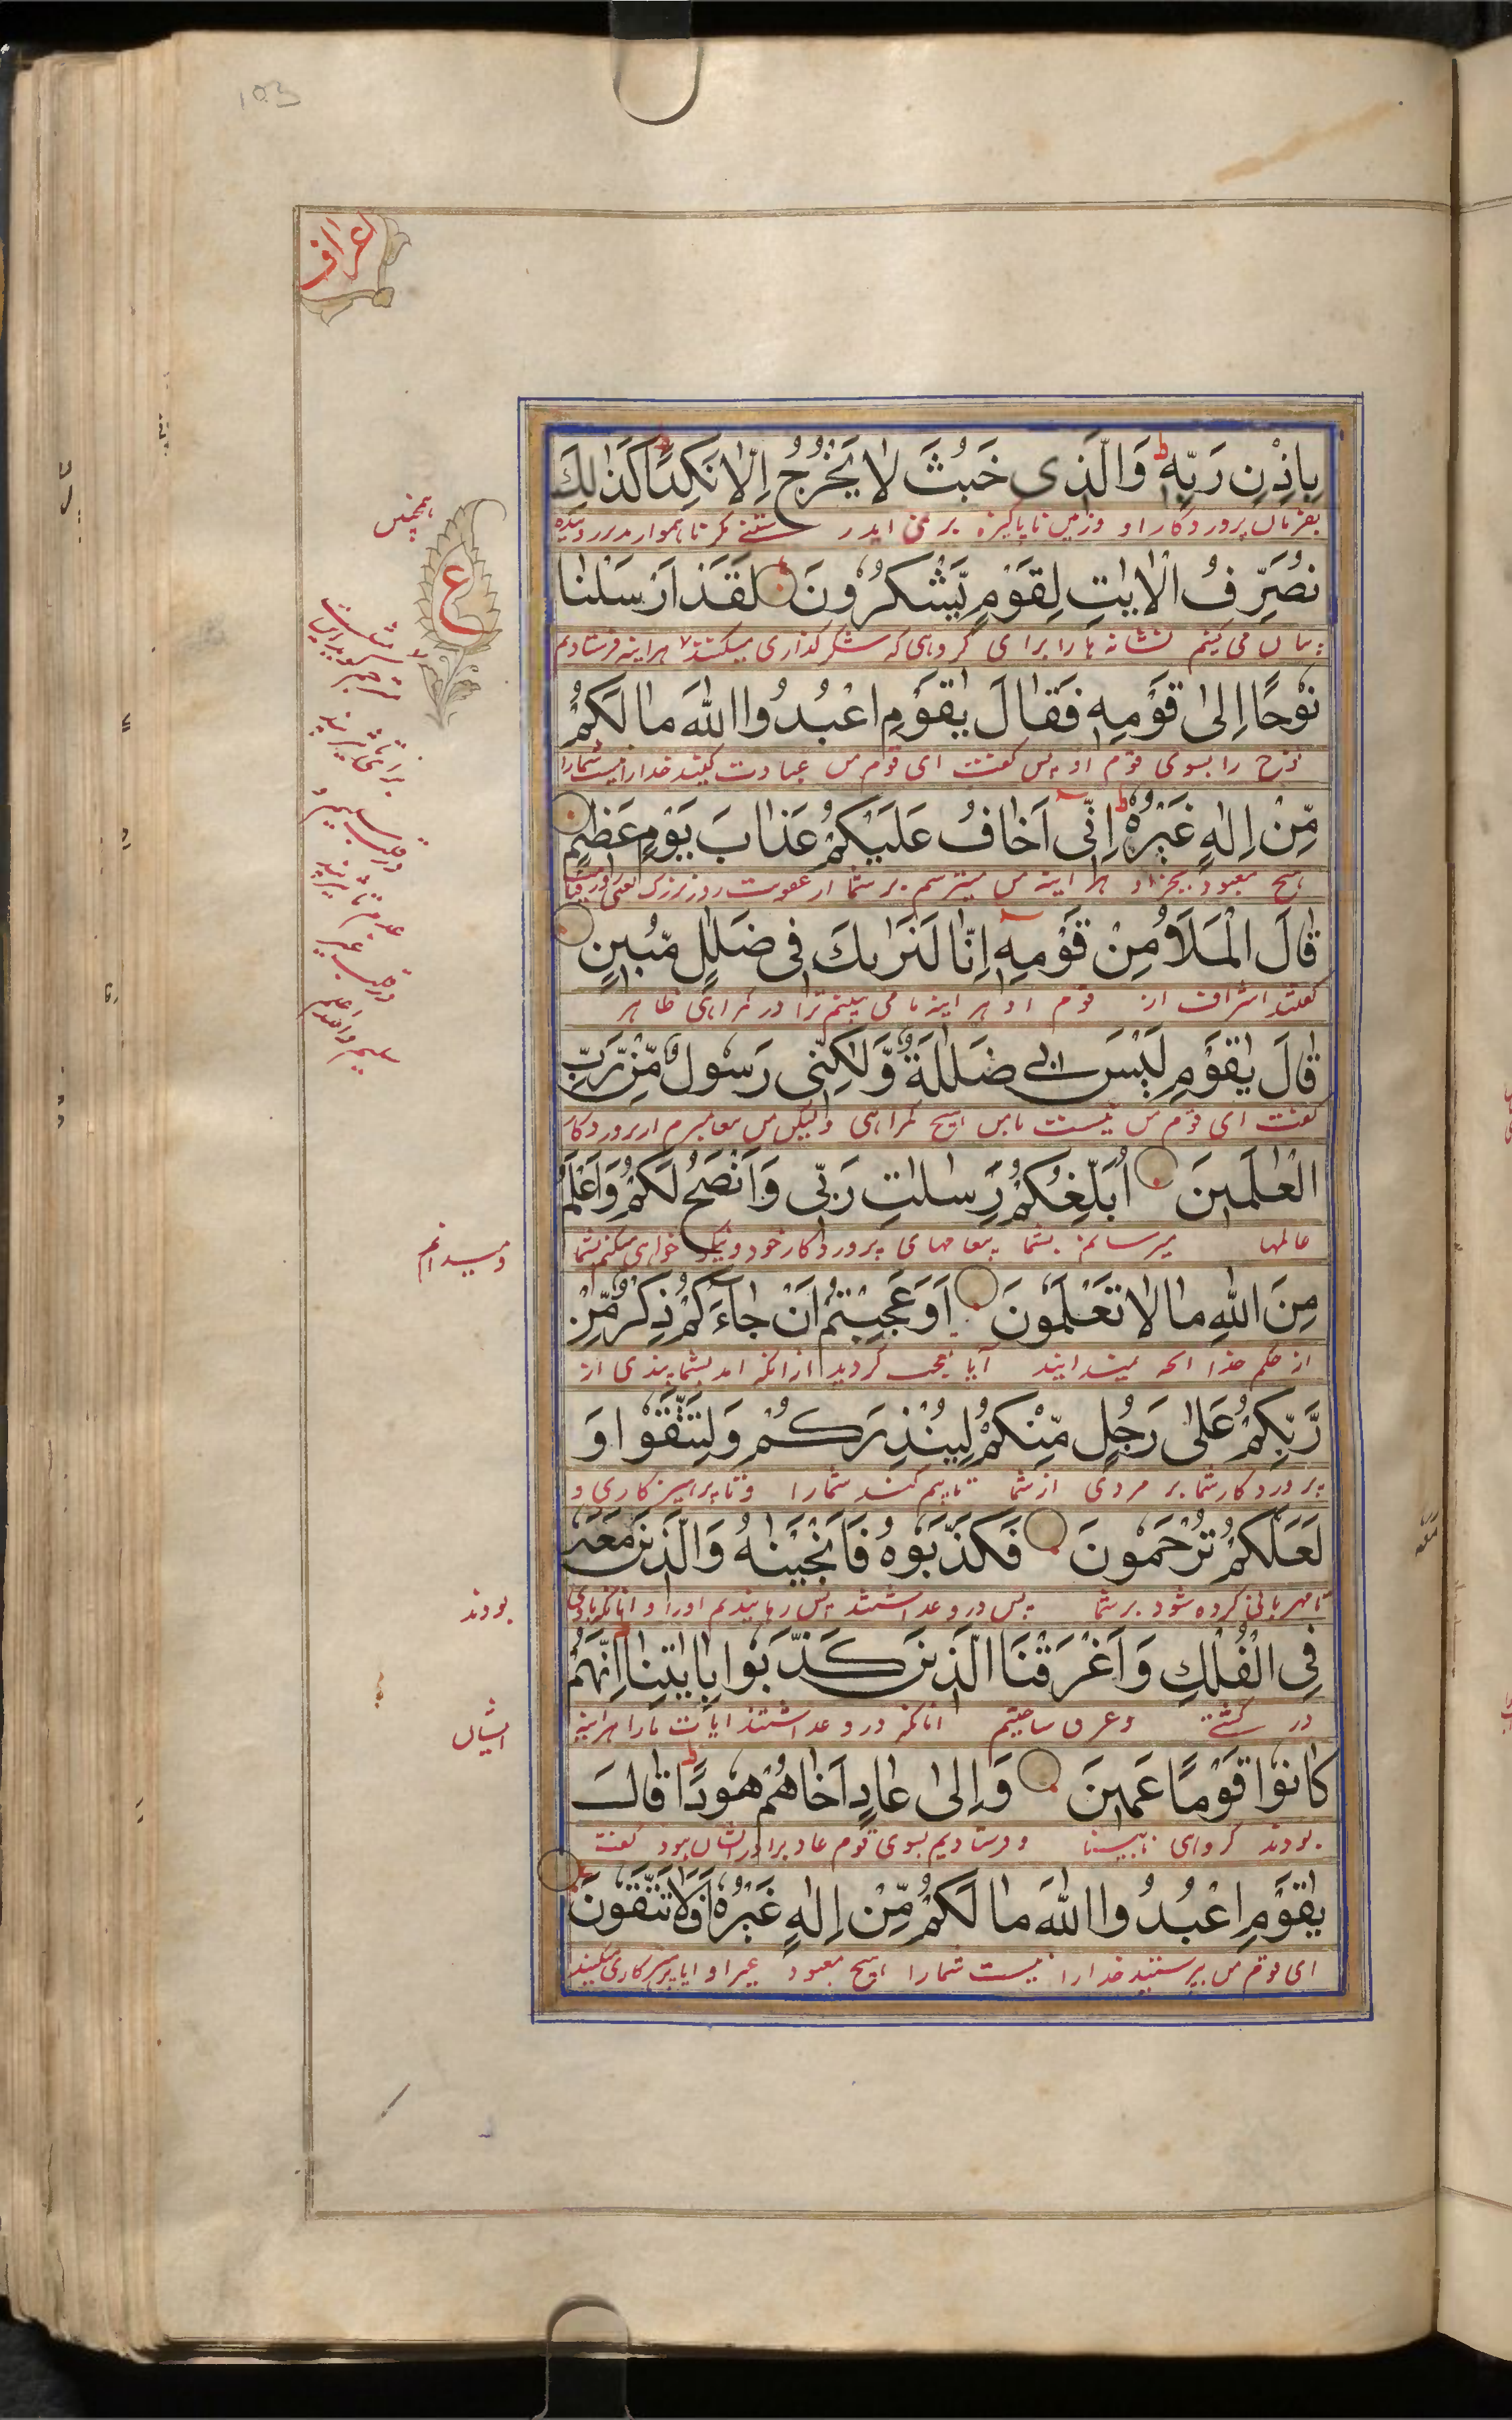 103
اعراف
بِاِذْنِ رَبِّهٖ ط وَالَّذِی خَبُثَ لَا یَخْرُجُ اِلَّا نَکِدًا کَذٰلِکَ
بفرمان پروردگار او و زمین ناپاکیزه بر نمی آید مگر ناهموار
همچنین
ع
نُصَرِّفُ الْاٰیٰتِ لِقَوْمٍ یَّشْکُرُونَ لَقَدْ اَرْسَلْنٰا
می کنیم نشانه ها را برای گروهی که شکر گذاری میکنند هراینه فرستادیم
نُوحًا اِلیٰ قَوْمِهٖ فَقٰالَ یٰقَوْمِ اعْبُدُوا اللّٰهَ مٰا لَکُمْ
نوح را بسوی قوم او پس گفت ای قوم من عبادت کنید خدارا نیست شمارا
مِّنْ اِلٰهٍ غَیْرُهٗ ط اِنِّی اَخٰافُ عَلَیْکُمْ عَذٰابَ یَوْمٍ عَظِیْمٍ
هیچ معبود بجز او هر اینه من میترسم بر شما از عقوبت روز بزرگ یعنی روز قیامت
قٰالَ الْمَلَاُ مِنْ قَوْمِهٖ اِنّٰا لَنَرٰىکَ فِی ضَلٰلٍ مُّبِینٍ
گفتند اشراف از قوم او هر اینه ما می بینیم ترا در گمراهی ظاهر
قٰالَ یٰقَوْمِ لَیْسَ بِی ضَلٰلَةٌ وَّلٰکِنِّی رَسُولٌ مِّنْ رَّبِّ
گفت ای قوم من نیست بامن هیچ گمراهی ولیکن من پیغامبرم از پروردگار
الْعٰلَمِینَ اُبَلِّغُکُمْ رِسٰلٰتِ رَبِّی وَاَنْصَحُ لَکُمْ وَاَعْلَمُ
عالمها میرسانم بشما پیغامهای پروردگار خود و نیک خواهی میکنم بشما
و میدانم
مِنَ اللّٰهِ مٰا لٰا تَعْلَمُونَ اَوَعَجِبْتُمْ اَنْ جٰاءَکُمْ ذِکْرٌ مِّنْ
از حکم خدا انچه نمیدانید آیا تعجب کردید از انکه امد بشما پندی از
رَّبِّکُمْ عَلیٰ رَجُلٍ مِّنْکُمْ لِیُنْذِرَکُمْ وَلِتَتَّقُوا وَ
پروردگار شما بر مردی از شما تا بیم کند شمارا و تا پرهیزکاری و
لَعَلَّکُمْ تُرْحَمُونَ فَکَذَّبُوهُ فَاَنْجَیْنٰهُ وَالَّذِینَ مَعَهٗ
تا مهربانی کرده شود بر شما پس دروغ داشتند پس رهانیدیم اورا و انانکه باوی
بودند
فِی الْفُلْکِ وَاَغْرَقْنَا الَّذِینَ کَذَّبُوا بِاٰیٰتِنٰا اِنَّهُمْ
در کشتی و غرق ساختیم انانکه دروغ داشتند ایات مارا هراینه
ایشان
کٰانُوا قَوْمًا عَمِینَ وَاِلیٰ عٰادٍ اَخٰاهُمْ هُودًا ط قٰالَ
بودند گروهی نابینا و فرستادیم بسوی قوم عاد برادر ایشان هود گفت
یٰقَوْمِ اعْبُدُوا اللّٰهَ مٰا لَکُمْ مِّنْ اِلٰهٍ غَیْرُهٗ اَفَلٰا تَتَّقُونَ
ای قوم من بپرستید خدارا نیست شمارا هیچ معبود غیر او ایا پرهیزکاری نمیکنید